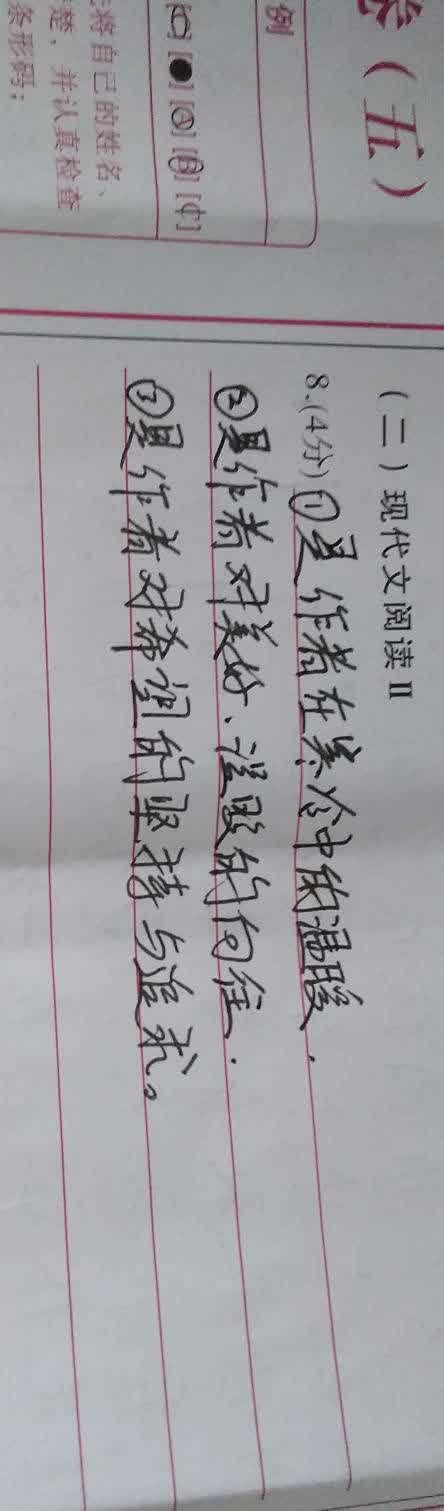 卷（五）
例
[C] [●] [A] [B] [C]
将自己的姓名、
楚，并认真检查
条形码；
（二）现代文阅读Ⅱ
8.(4分) ①是作者在寒冷中的温暖.
②是作者对美好、温暖的向往.
③是作者对希望的坚持与追求。